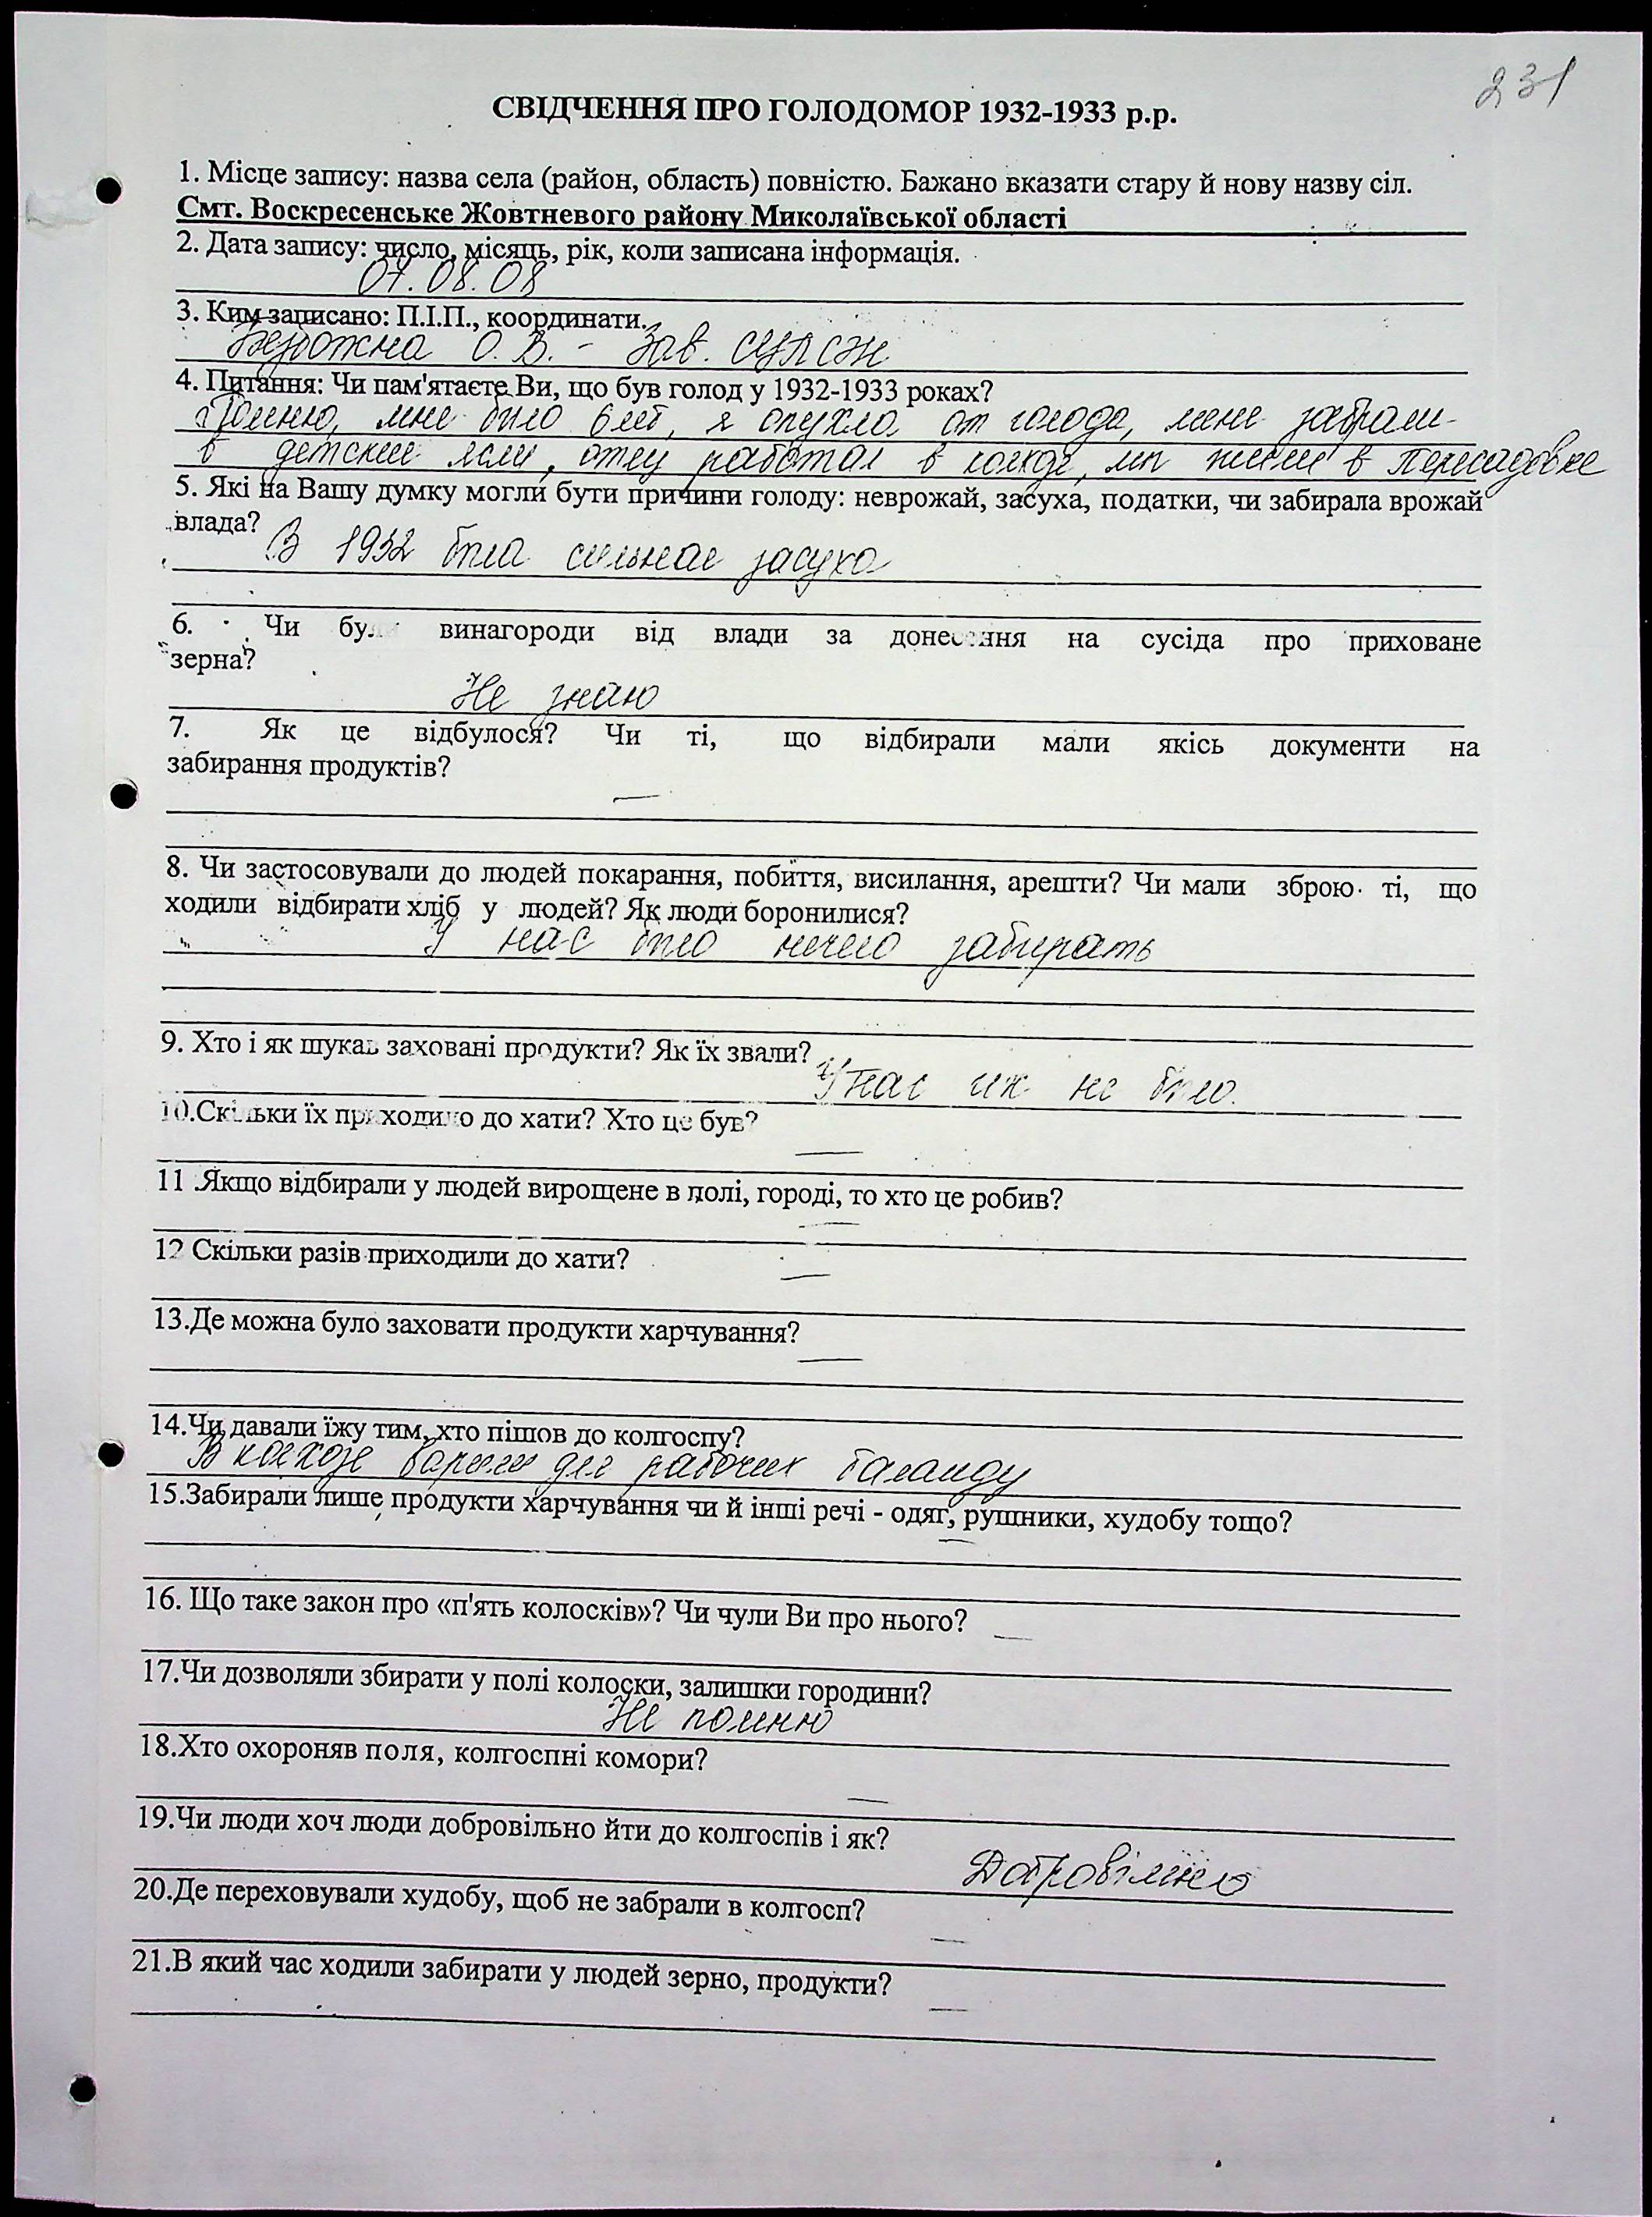 231
СВІДЧЕННЯ ПРО ГОЛОДОМОР 1932-1933 р.р.
1. Місце запису: назва села (район, область) повністю. Бажано вказати стару й нову назву сіл.
Смт. Воскресенське Жовтневого району Миколаївської області
2. Дата запису: число, місяць, рік, коли записана інформація.
07.08.08
3. Ким записано: П.І.П., координати.
О. В. - Зав.
4. Питання: Чи пам'ятаєте Ви, що був голод у 1932-1933 роках?
Помню, мне было 6 лет, я опухла от голода, меня забрали
в детские ясли, отец работал в колхозе, мы жили в Пересадовке
5. Які на Вашу думку могли бути причини голоду: неврожай, засуха, податки, чи забирала врожай
влада?
В 1932 была сильная засуха
6. Чи були винагороди від влади за донесення на сусіда про приховане
зерна?
Не знаю
7. Як це відбулося? Чи ті, що відбирали мали якісь документи на
забирання продуктів?
—
8. Чи застосовували до людей покарання, побиття, висилання, арешти? Чи мали зброю ті, що
ходили відбирати хліб у людей? Як люди боронилися?
У нас было нечего забирать
9. Хто і як шукав заховані продукти? Як їх звали?
У нас их не было.
10.Скільки їх приходило до хати? Хто це був?
—
11 .Якщо відбирали у людей вирощене в полі, городі, то хто це робив?
—
12 Скільки разів приходили до хати?
—
13.Де можна було заховати продукти харчування?
—
14.Чи давали їжу тим, хто пішов до колгоспу?
В колхозе варили для рабочих баланду
15.Забирали лише продукти харчування чи й інші речі - одяг, рушники, худобу тощо?
—
16. Що таке закон про «п'ять колосків»? Чи чули Ви про нього?
—
17.Чи дозволяли збирати у полі колоски, залишки городини?
Не помню
18.Хто охороняв поля, колгоспні комори?
—
19.Чи люди хоч люди добровільно йти до колгоспів і як?
Добровільно
20.Де переховували худобу, щоб не забрали в колгосп?
—
21.В який час ходили забирати у людей зерно, продукти?
—